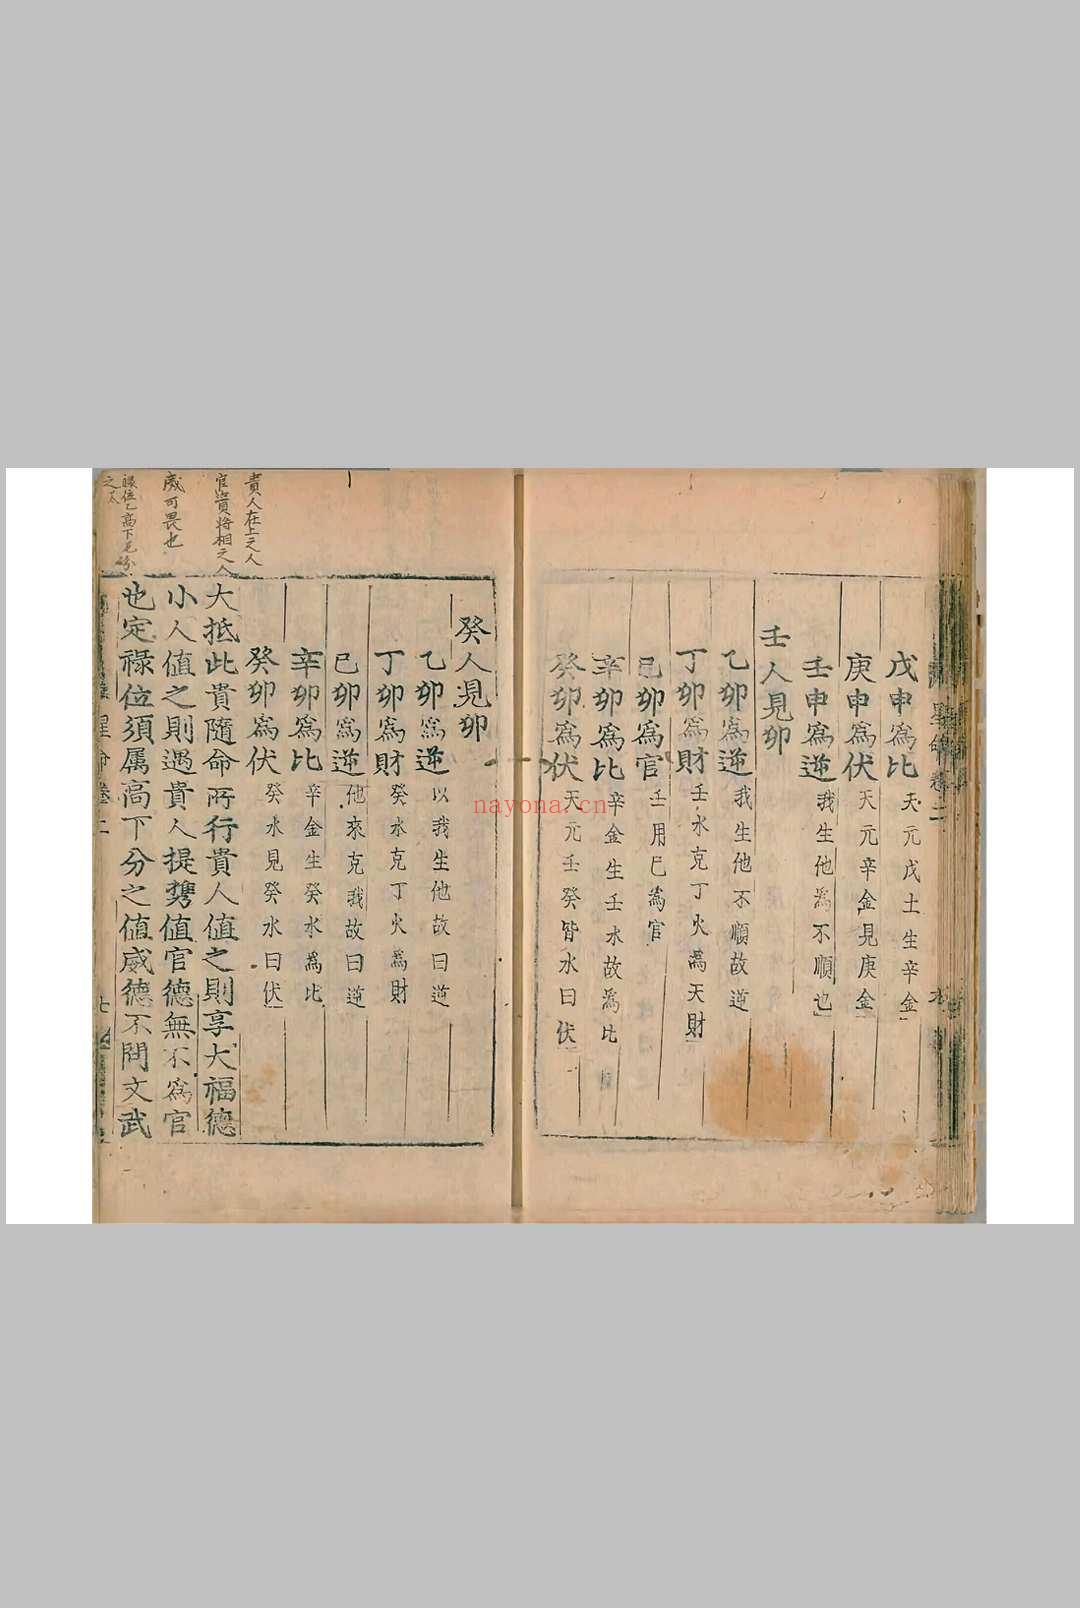 戊申為比 天元戊土生辛金
庚申為伏 天元辛金見庚金
壬申為逆 我生他為不順也
壬人見卯
乙卯為逆 我生他不順故逆
丁卯為財 壬水克丁火為天財
己卯為官 壬用巳為官
辛卯為比 辛金生壬水故為比
癸卯為伏 天元壬癸皆水曰伏
癸人見卯
乙卯為逆 以我生他故曰逆
丁卯為財 癸水克丁火為財
己卯為逆 他來克我故曰逆
辛卯為比 辛金生癸水為比
癸卯為伏 癸水見癸水曰伏
大抵此貴隨命所行貴人值之則享大福德
小人值之則遇貴人提攜值官德無不為官
也定祿位須属高下分之值威德不問文武
貴人在上之人
官貴將相之人
威可畏也
星命卷二
七
nayona.cn